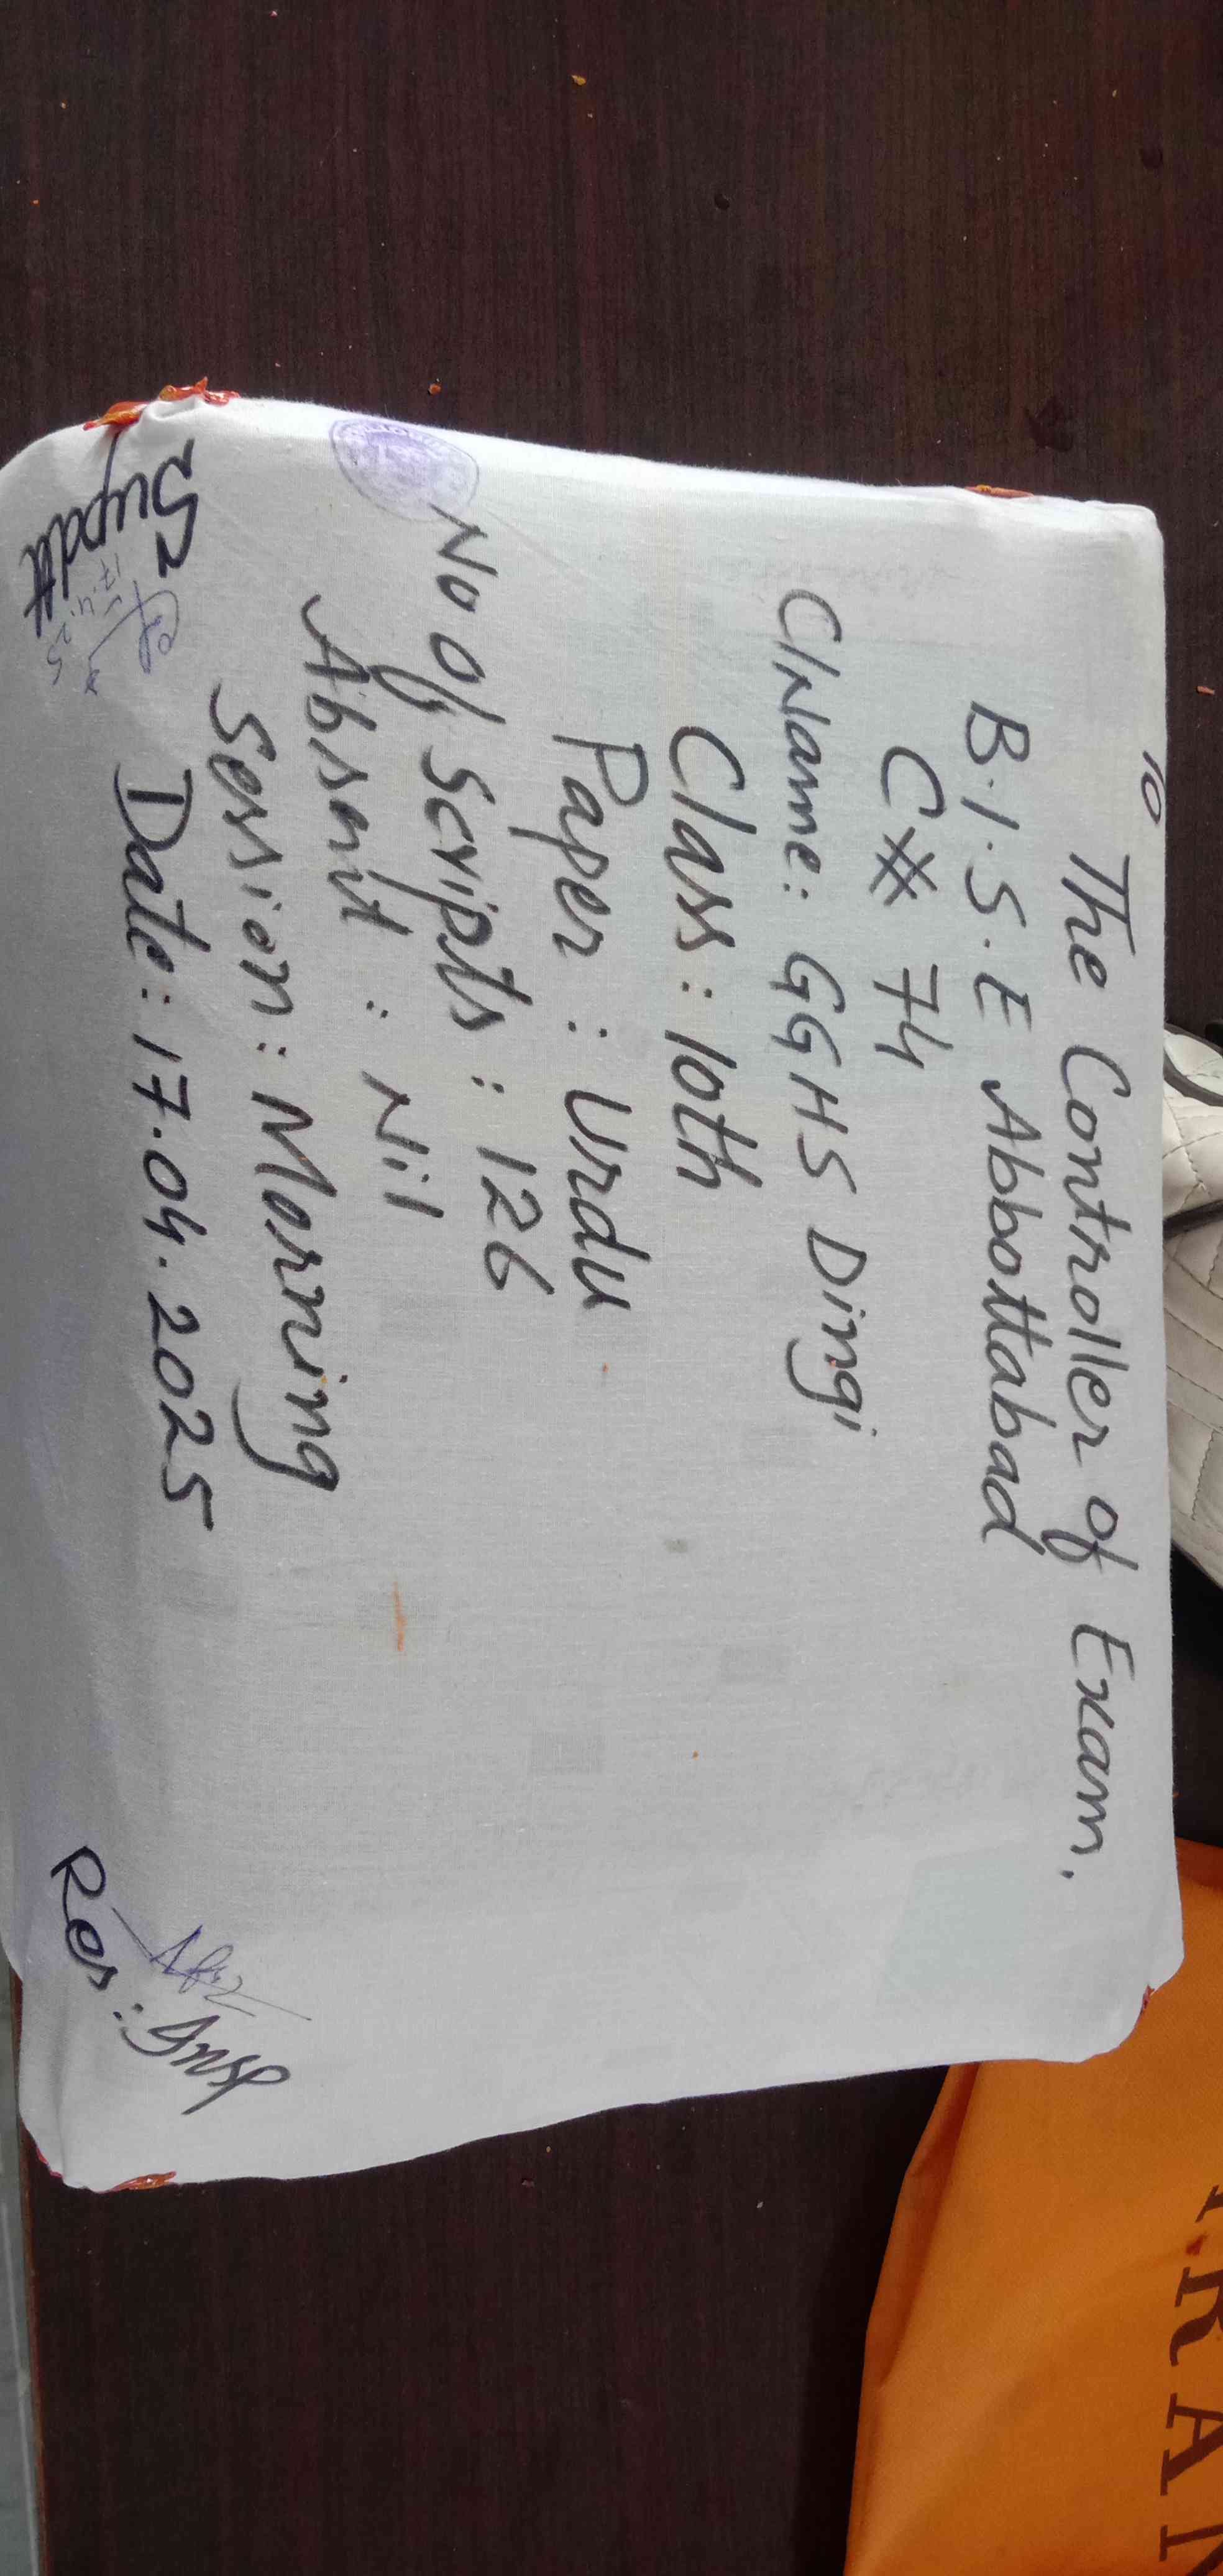 To
The Controller of Exam.
B.I.S.E Abbottabad
C# 74
C/Name: GGHS Dingi
Class: 10th
Paper: Urdu
No of Scripts: 126
Absent: Nil
Session: Morning
Date: 17.04.2025
Supdtt
17.4.25
Res: Insp